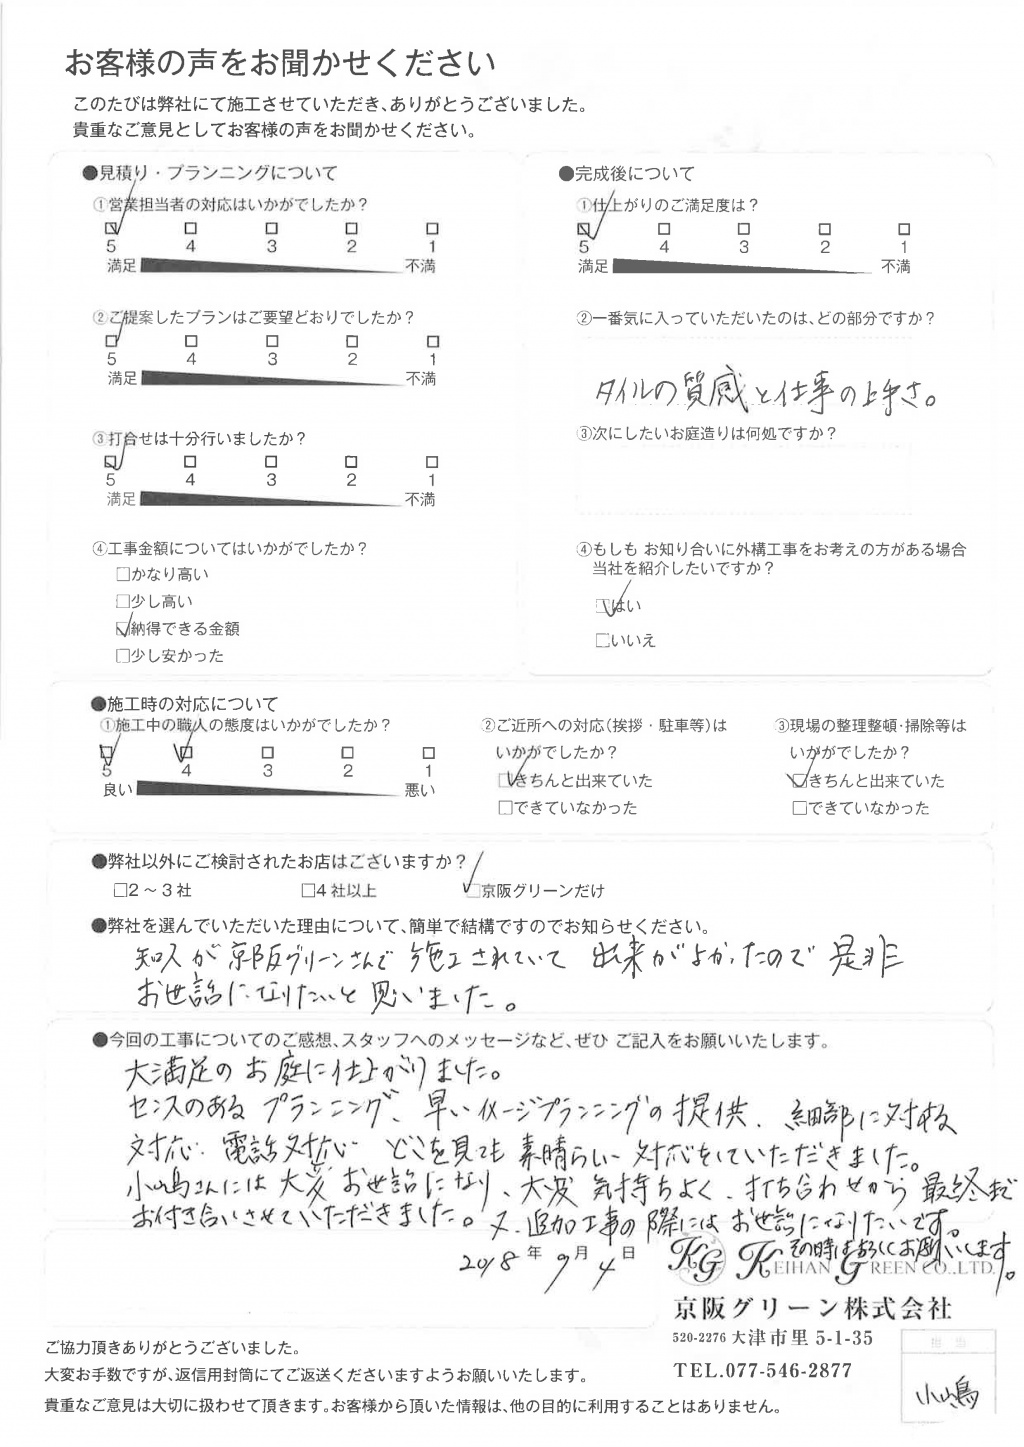 お客様の声をお聞かせください
このたびは弊社にて施工させていただき、ありがとうございました。
貴重なご意見としてお客様の声をお聞かせください。
●見積り・プランニングについて
①営業担当者の対応はいかがでしたか？
5 4 3 2 1
満足 不満
②ご提案したプランはご要望どおりでしたか？
5 4 3 2 1
満足 不満
③打合せは十分行いましたか？
5 4 3 2 1
満足 不満
④工事金額についてはいかがでしたか？
□かなり高い
□少し高い
☑納得できる金額
□少し安かった
●完成後について
①仕上がりのご満足度は？
5 4 3 2 1
満足 不満
②一番気に入っていただいたのは、どの部分ですか？
タイルの質感と仕事の上手さ。
③次にしたいお庭造りは何処ですか？
④もしも お知り合いに外構工事をお考えの方がある場合
当社を紹介したいですか？
☑はい
□いいえ
●施工時の対応について
①施工中の職人の態度はいかがでしたか？
5 4 3 2 1
良い 悪い
②ご近所への対応（挨拶・駐車等）は
いかがでしたか？
☑きちんと出来ていた
□できていなかった
③現場の整理整頓・掃除等は
いかがでしたか？
☑きちんと出来ていた
□できていなかった
●弊社以外にご検討されたお店はございますか？
□2～3社 □4社以上 ☑京阪グリーンだけ
●弊社を選んでいただいた理由について、簡単で結構ですのでお知らせください。
知人が京阪グリーンさんで施工されていて 出来がよかったので是非
お世話になりたいと思いました。
●今回の工事についてのご感想、スタッフへのメッセージなど、ぜひ ご記入をお願いいたします。
大満足のお庭に仕上がりました。
センスのあるプランニング、早いイメージプランニングの提供、細部に対する
対応、電話対応 どこを見ても素晴らしい対応をしていただきました。
小嶋さんには大変お世話になり、大変気持ちよく、打ち合わせから最終まで
お付き合いさせていただきました。又、追加工事の際にはお世話になりたいです。
その時はよろしくお願いします。
2018年 9月 4日
KG KEIHAN GREEN CO.,LTD.
京阪グリーン株式会社
520-2276 大津市里 5-1-35
TEL.077-546-2877
ご協力頂きありがとうございました。
大変お手数ですが、返信用封筒にてご返送くださいますようお願いいたします。
貴重なご意見は大切に扱わせて頂きます。お客様から頂いた情報は、他の目的に利用することはありません。
担当
小嶋